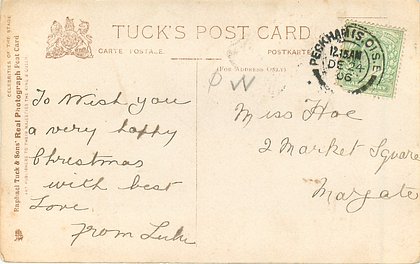 TUCK'S POST CARD
CARTE POSTALE.
POSTKARTE.
(FOR ADDRESS ONLY)
CELEBRITIES OF THE STAGE
Raphael Tuck & Sons' Real Photograph Post Card
PECKHAM S.O. S.E.
12.15AM
DE 24
06
To Wish you
a very happy
Christmas
with best
Love
from Lulu
Miss Hoe
2 Market Square
Margate